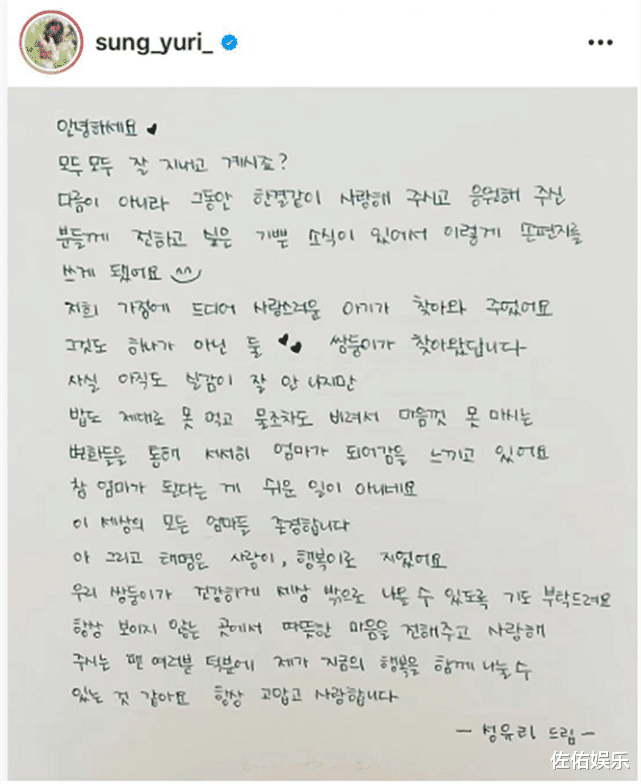 sung_yuri_
안녕하세요
모두모두 잘 지내고 계시죠?
다름이 아니라 그동안 한결같이 사랑해 주시고 응원해 주신
분들께 전하고 싶은 기쁜 소식이 있어서 이렇게 손편지를
쓰게 됐어요 ^^
저희 가정에 드디어 사랑스러운 아기가 찾아와 주었어요
그것도 하나가 아닌 둘 쌍둥이가 찾아왔답니다
사실 아직도 실감이 잘 안 나지만
밥도 제대로 못 먹고 물조차도 비려서 마음껏 못 마시는
변화들을 통해 서서히 엄마가 되어감을 느끼고 있어요
참 엄마가 된다는 게 쉬운 일이 아니네요
이 세상의 모든 엄마들 존경합니다
아 그리고 태명은 사랑이, 행복이로 지었어요
우리 쌍둥이가 건강하게 세상 밖으로 나올 수 있도록 기도 부탁드려요
항상 보이지 않는 곳에서 따뜻한 마음을 전해주고 사랑해
주시는 팬 여러분 덕분에 제가 지금의 행복을 함께 나눌 수
있는 것 같아요 항상 고맙고 사랑합니다
- 성유리 드림 -
佐佑娱乐